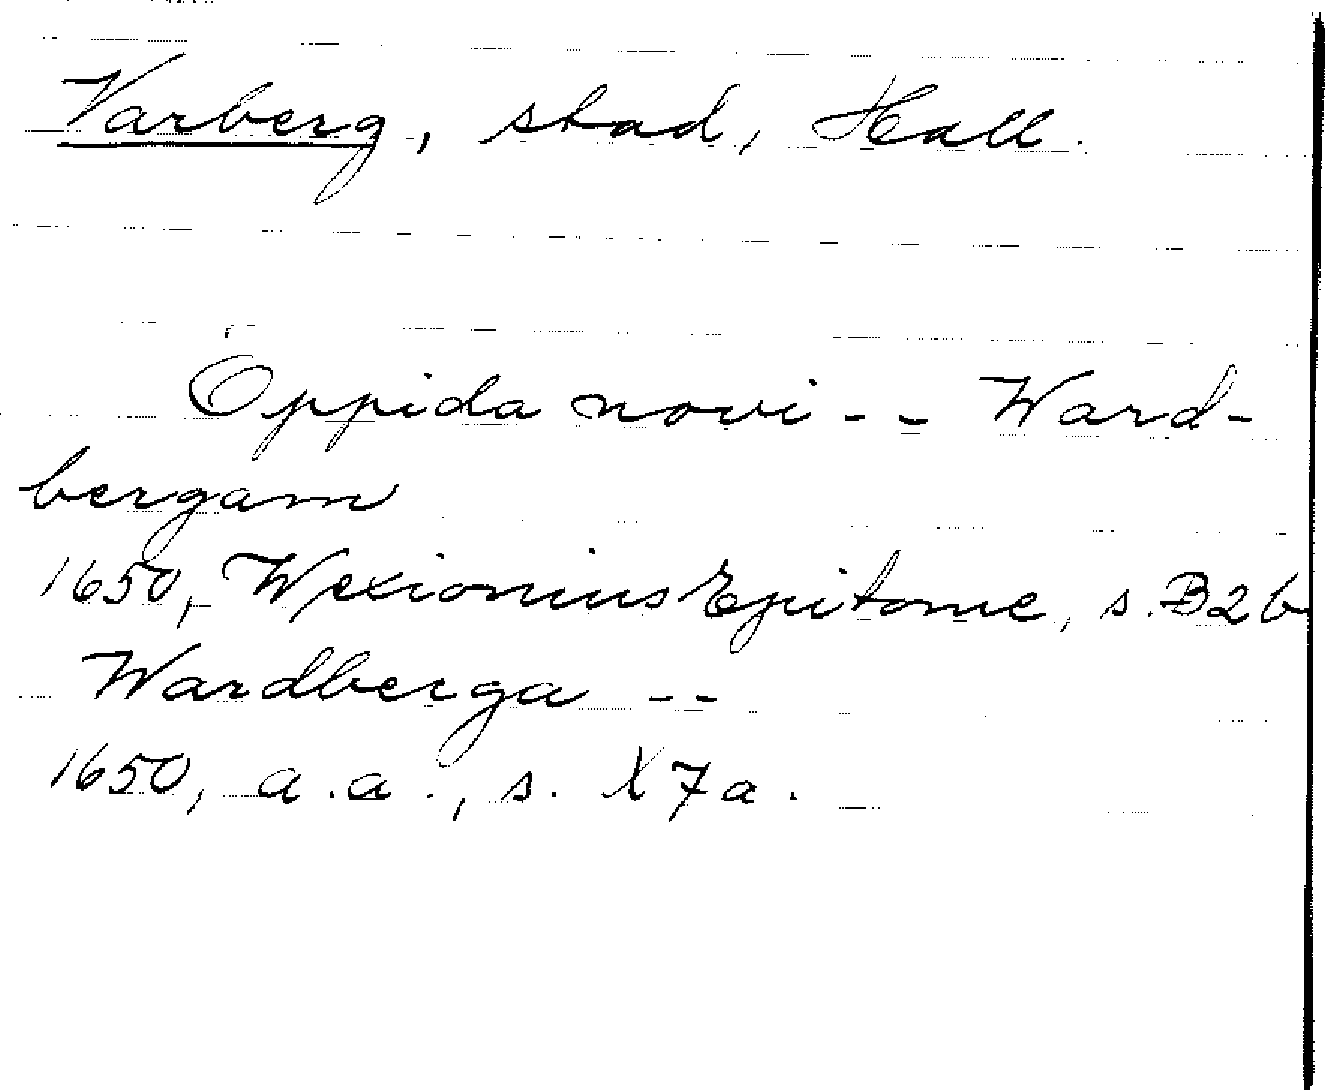 Varberg, stad, Hall.
Oppida novi -- Ward-
bergam
1650, Wexionius Epitome, s. B2b
Wardberga --
1650, a.a., s. X7a.